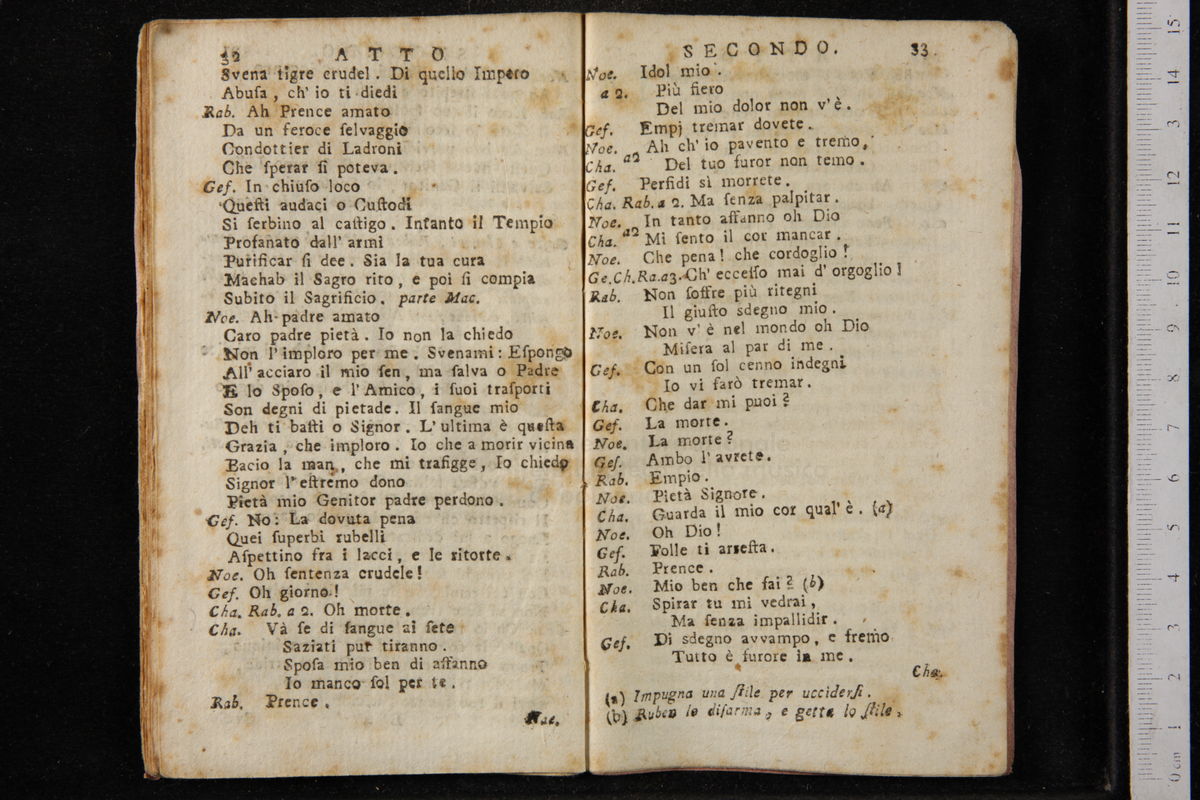 32 ATTO
Svena tigre crudel. Di quello Impero
Abuſa, ch' io ti diedi
Rab. Ah Prence amato
Da un feroce ſelvaggio
Condottier di Ladroni
Che ſperar ſi poteva.
Geſ. In chiuſo loco
Queſti audaci o Cuſtodi
Si ſerbino al caſtigo. Intanto il Tempio
Profanato dall' armi
Purificar ſi dee. Sia la tua cura
Machab il Sagro rito, e poi ſi compia
Subito il Sagrificio. parte Mac.
Noe. Ah padre amato
Caro padre pietà. Io non la chiedo
Non l'imploro per me. Svenami: Eſpongo
All' acciaro il mio ſen, ma ſalva o Padre
E lo Spoſo, e l'Amico, i ſuoi traſporti
Son degni di pietade. Il ſangue mio
Deh ti baſti o Signor. L'ultima è queſta
Grazia, che imploro. Io che a morir vicina
Bacio la man, che mi trafigge, Io chiedo
Signor l'eſtremo dono
Pietà mio Genitor padre perdono.
Geſ. No: La dovuta pena
Quei ſuperbi rubelli
Aſpettino fra i lacci, e le ritorte.
Noe. Oh ſentenza crudele!
Geſ. Oh giorno!
Cha. Rab. a 2. Oh morte.
Cha. Và ſe di ſangue ai ſete
Saziati pur tiranno.
Spoſa mio ben di affanno
Io manco ſol per te.
Rab. Prence.
Noe.
SECONDO. 33
Noe. Idol mio.
a 2. Più fiero
Del mio dolor non v'è.
Geſ. Empj tremar dovete.
Noe. Ah ch' io pavento e tremo.
Cha. a2 Del tuo furor non temo.
Geſ. Perfidi sì morrete.
Cha. Rab. a 2. Ma ſenza palpitar.
Noe. In tanto affanno oh Dio
Cha. a2 Mi ſento il cor mancar.
Noe. Che pena! che cordoglio!
Ge.Ch.Ra.a3. Ch' ecceſſo mai d' orgoglio!
Rab. Non ſoffre più ritegni
Il giuſto sdegno mio.
Noe. Non v' è nel mondo oh Dio
Miſera al par di me.
Geſ. Con un ſol cenno indegni
Io vi farò tremar.
Cha. Che dar mi puoi?
Geſ. La morte.
Noe. La morte?
Geſ. Ambo l' avrete.
Rab. Empio.
Noe. Pietà Signore.
Cha. Guarda il mio cor qual' è. (a)
Noe. Oh Dio!
Geſ. Folle ti arreſta.
Rab. Prence.
Noe. Mio ben che fai? (b)
Cha. Spirar tu mi vedrai,
Ma ſenza impallidir.
Geſ. Di sdegno avvampo, e fremo
Tutto è furore in me.
Cha.
(a) Impugna una ſtile per ucciderſi.
(b) Ruben lo diſarma, e getta lo ſtile.